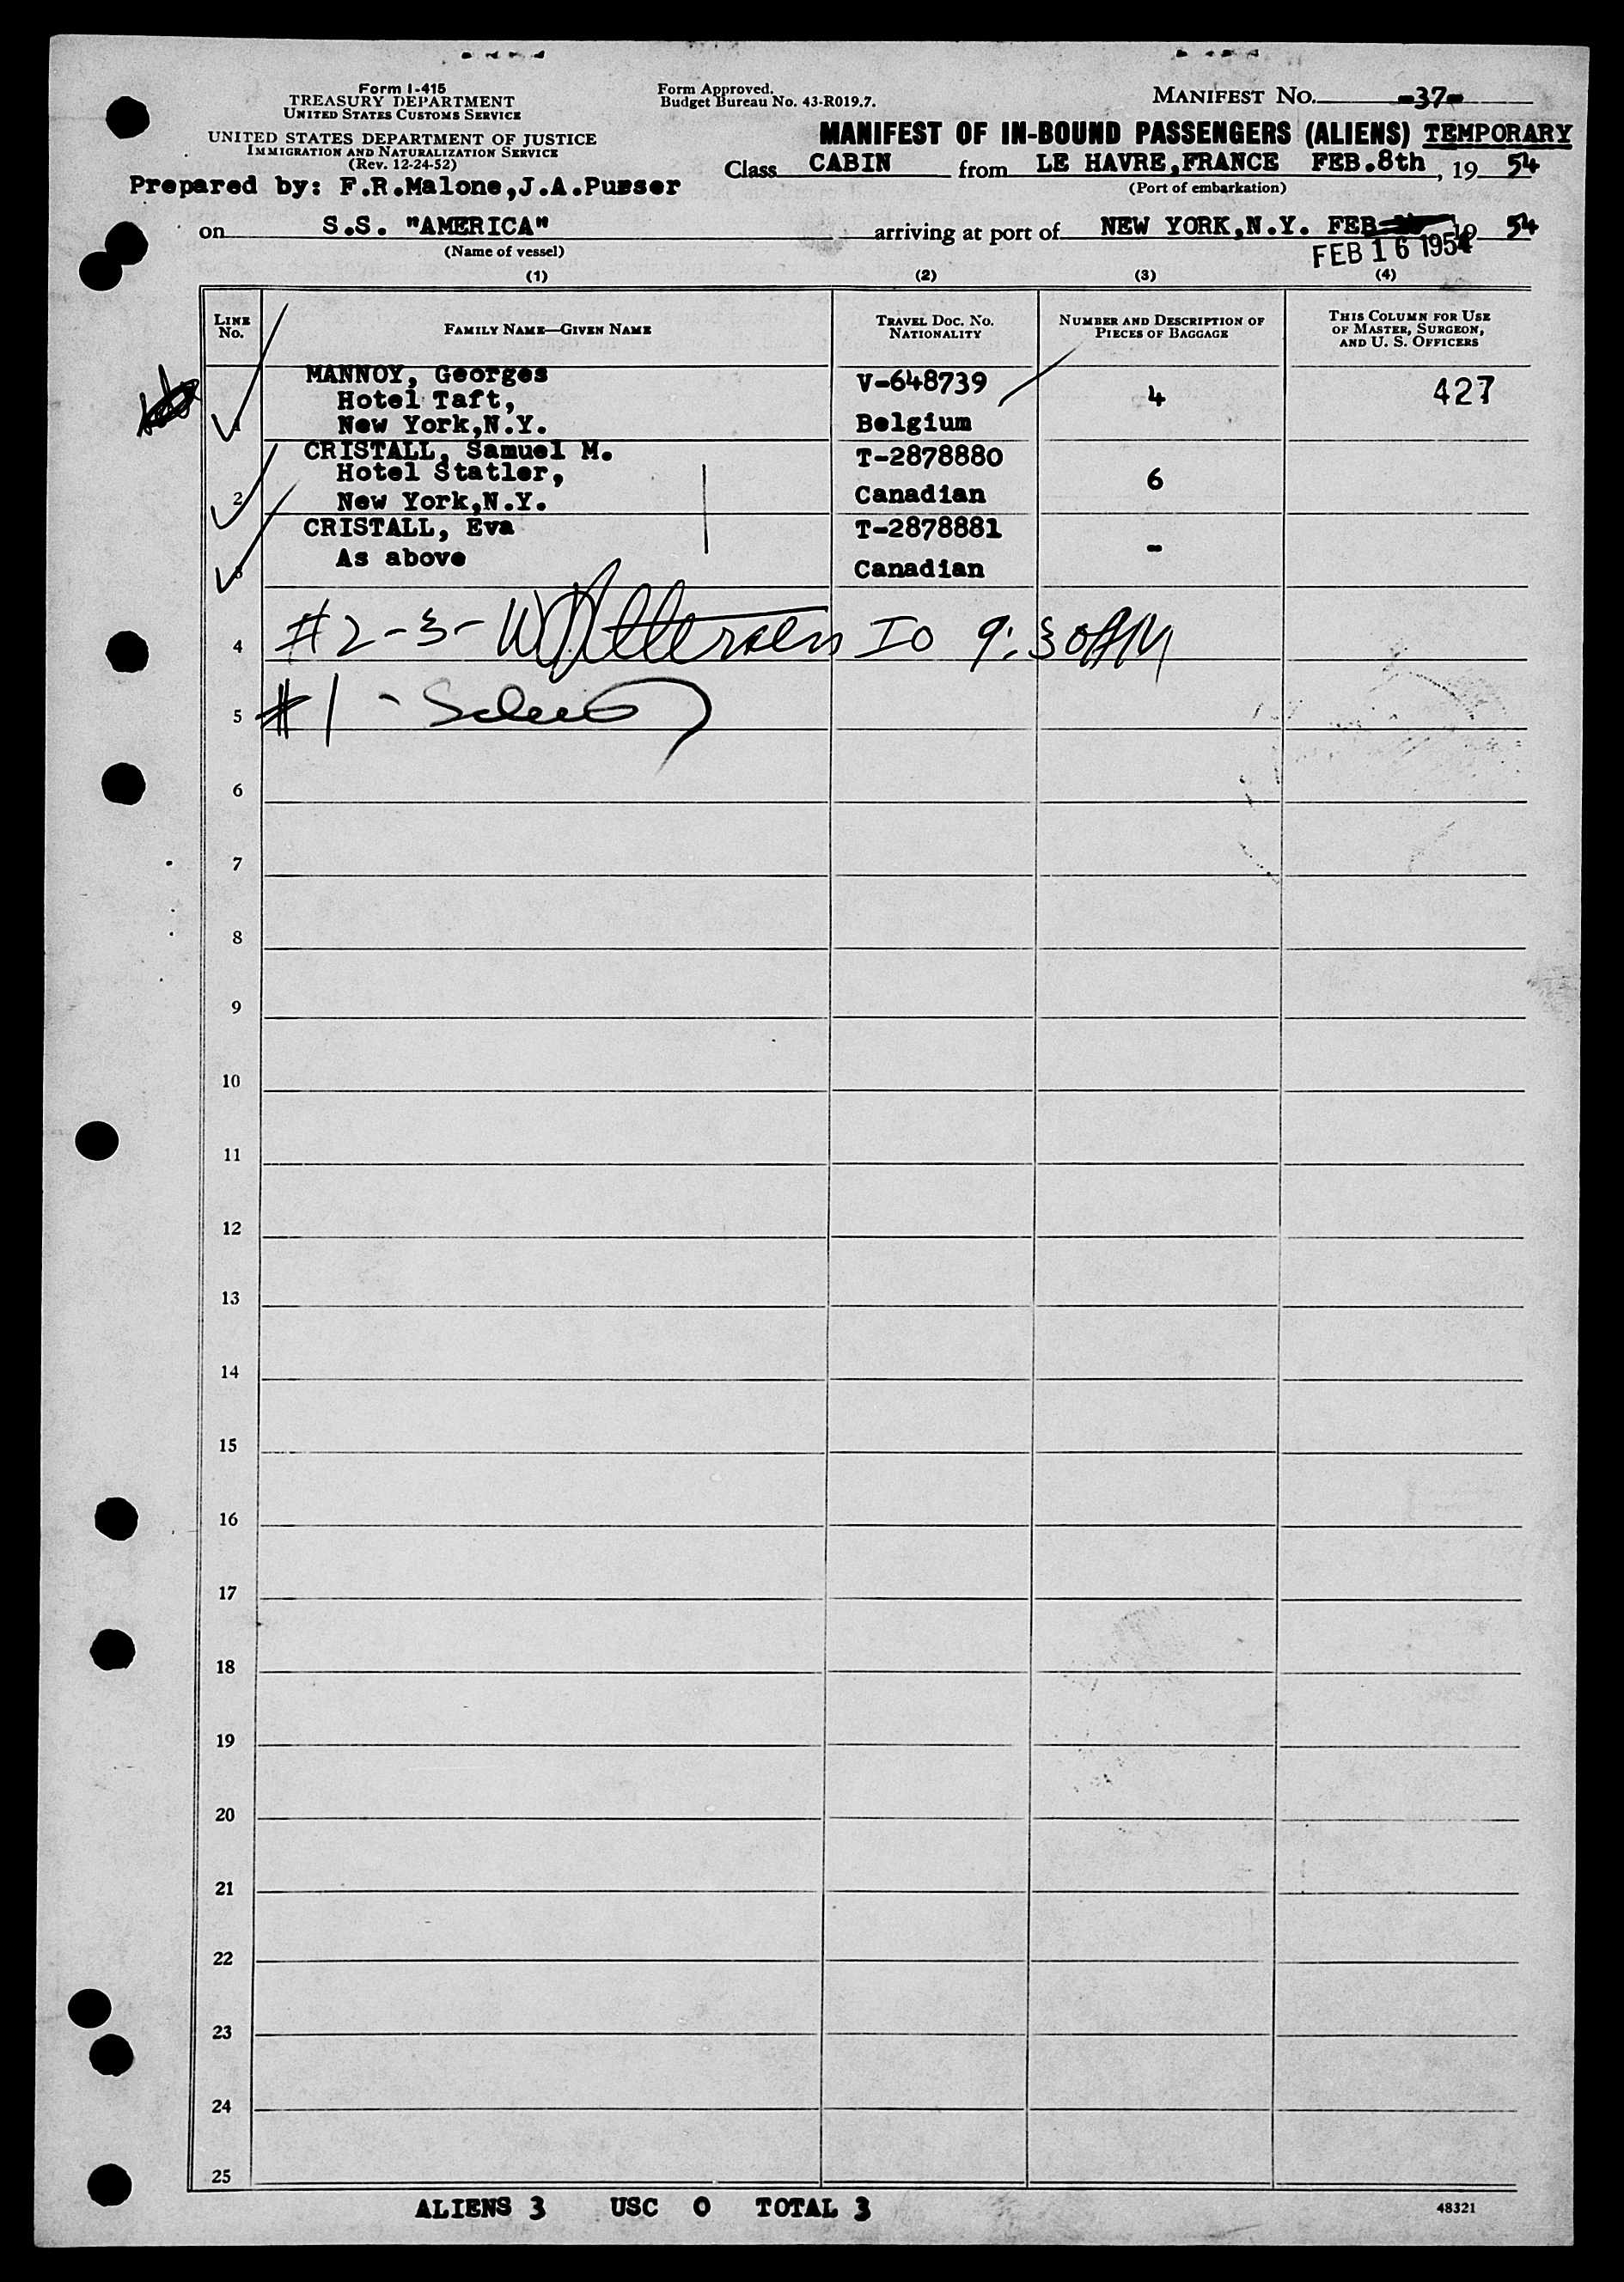 Form I-415
TREASURY DEPARTMENT
UNITED STATES CUSTOMS SERVICE
UNITED STATES DEPARTMENT OF JUSTICE
IMMIGRATION AND NATURALIZATION SERVICE
(Rev. 12-24-52)
Prepared by: F.R.Malone,J.A.Purser
Form Approved.
Budget Bureau No. 43-R019.7.
MANIFEST NO. -37-
MANIFEST OF IN-BOUND PASSENGERS (ALIENS) TEMPORARY
Class CABIN from LE HAVRE,FRANCE FEB.8th, 19 54
(Port of embarkation)
on S.S. "AMERICA" arriving at port of NEW YORK,N.Y. FEB 19 54
(Name of vessel)
FEB 16 1954
(1) (2) (3) (4)
LINE NO.
FAMILY NAME—GIVEN NAME
TRAVEL DOC. NO. NATIONALITY
NUMBER AND DESCRIPTION OF PIECES OF BAGGAGE
THIS COLUMN FOR USE OF MASTER, SURGEON, AND U. S. OFFICERS
1 MANNOY, Georges V-648739 4 427
Hotel Taft,
New York,N.Y. Belgium
CRISTALL, Samuel M. T-2878880
Hotel Statler, 6
2 New York,N.Y. Canadian
CRISTALL, Eva T-2878881 -
As above
3 Canadian
4 #2-3- IO 9:30AM
5 #1 -
6
7
8
9
10
11
12
13
14
15
16
17
18
19
20
21
22
23
24
25
ALIENS 3 USC 0 TOTAL 3
48321